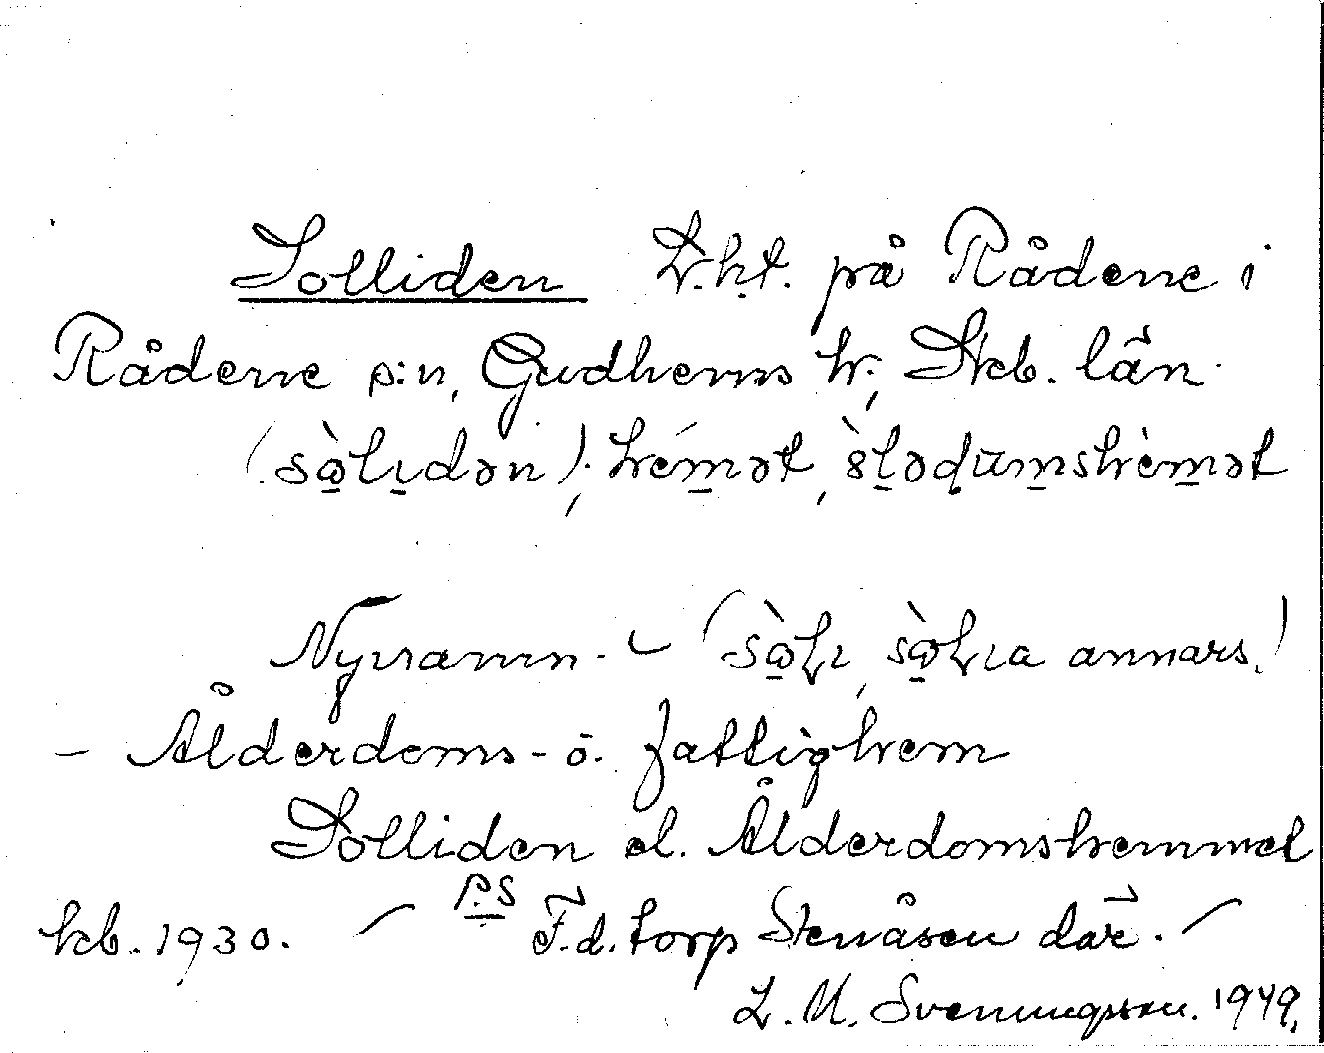 Solliden L.ht. på Rådene i
Rådene s:n, Gudhems hr, Skb. län.
(sòlıdən); hémət, òlədumshèmət
Nynamn. – (sòlı, sòlıa annars.)
– Ålderdoms- o. fattighem
Solliden el. Ålderdomshemmet
kb. 1930. – P.S F.d. torp Stenåsen där. –
L. M. Svenungsson. 1949.